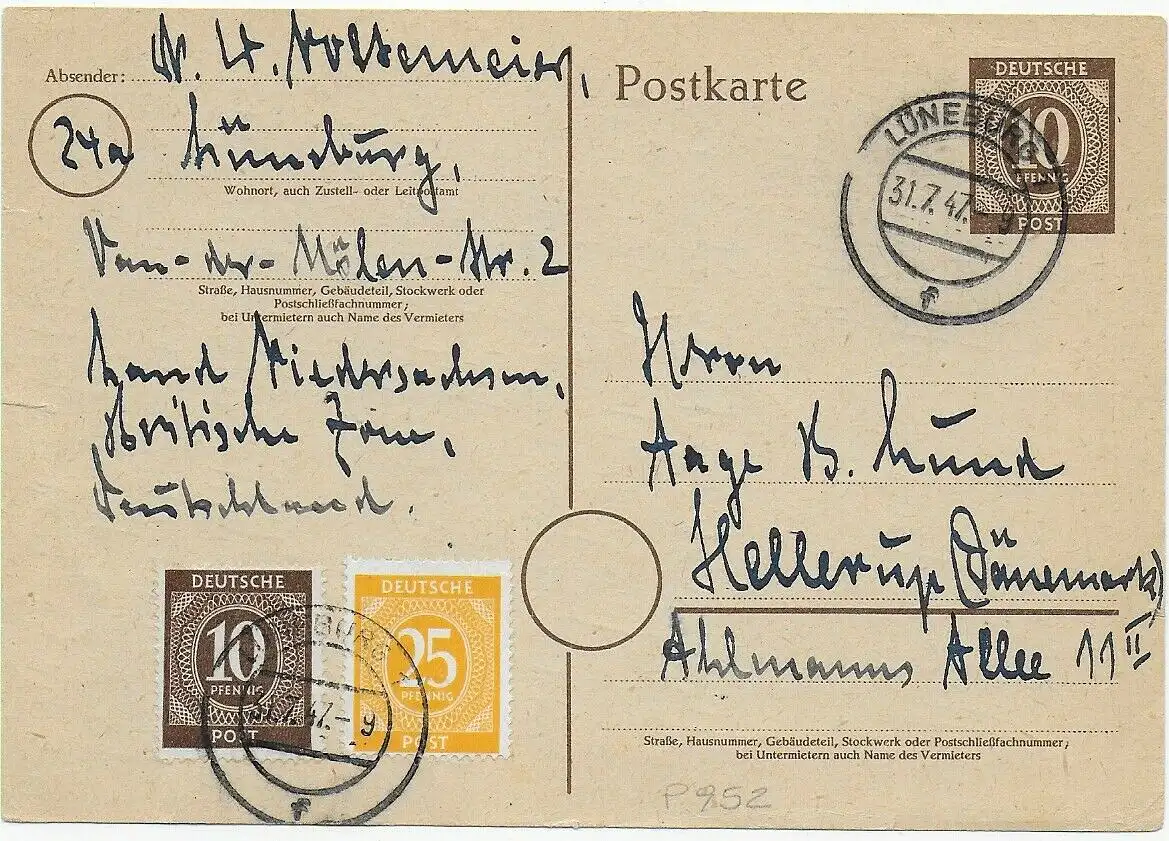 Absender: W. A. Voltemeier,
24a Lüneburg,
Wohnort, auch Zustell- oder Leitpostamt
Van-der-Mölen-Str. 2
Straße, Hausnummer, Gebäudeteil, Stockwerk oder
Postschließfachnummer;
bei Untermietern auch Name des Vermieters
Land Niedersachsen,
Britische Zone,
Deutschland.
DEUTSCHE
10
PFENNIG
POST
DEUTSCHE
25
PFENNIG
POST
LÜNEBURG
31.7.47.-9
f
Postkarte
DEUTSCHE
10
PFENNIG
POST
LÜNEBURG
31.7.47.-9
f
Herrn
Aage B. Lund
Hellerup (Dänemark)
Ahlmanns Allee 11 II
Straße, Hausnummer, Gebäudeteil, Stockwerk oder Postschließfachnummer;
bei Untermietern auch Name des Vermieters
P 952